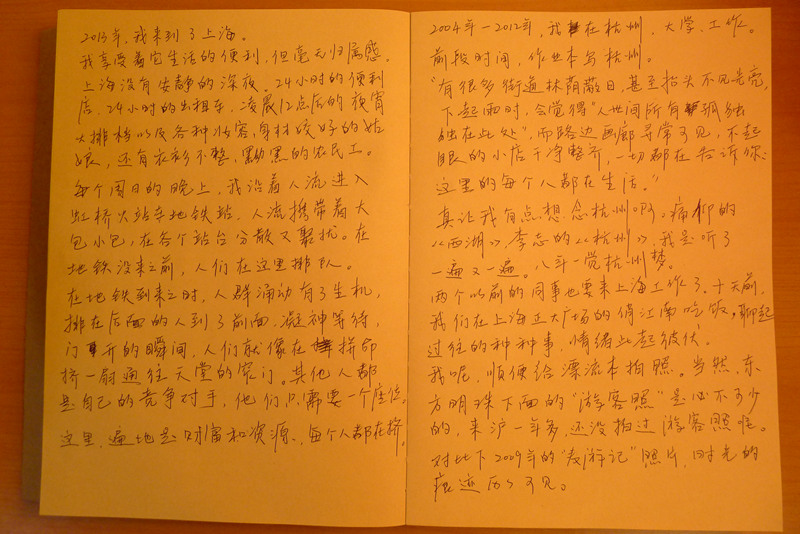 2013年,我来到了上海。
我享受着它生活的便利,但毫无归属感。
上海没有安静的深夜。24小时的便利
店、24小时的出租车、凌晨12点后的夜宵
大排档以及各种妆容、身材姣好的姑
娘,还有衣衫不整、黝黑的农民工。
每个周日的晚上,我沿着人流进入
虹桥火站车地铁站,人流携带着大
包小包,在各个站台分散又聚拢。在
地铁没来之前,人们在这里排队。
在地铁到来之时,人群涌动有了生机,
排在后面的人到了前面,凝神等待,
门开的瞬间,人们就像在拼命
挤一扇通往天堂的窄门。其他人都
是自己的竞争对手,他们只需要一个座位。
这里,遍地是财富和资源,每个人都在挤。
2004年-2012年,我在杭州,大学、工作。
前段时间,作业本写杭州。
"有很多街道林荫蔽日,甚至抬头不见光亮,
下起雨时,会觉得"人世间所有孤独
独在此处",而路边画廊寻常可见,不起
眼的小店干净整齐,一切都在告诉你:
这里的每个人都在生活。"
真让我有点想念杭州啊。痛仰的
《西湖》、李志的《杭州》,我是听了
一遍又一遍。八年一觉杭州梦。
两个以前的同事也要来上海工作了。十天前,
我们在上海正大广场的俏江南吃饭,聊起
过往的种种事,情绪此起彼伏。
我呢,顺便给漂流本拍照。当然,东
方明珠下面的"游客照"是必不可少
的,来沪一年多,还没拍过游客照呢。
对比下2009年的"表游记"照片,时光的
痕迹历历可见。